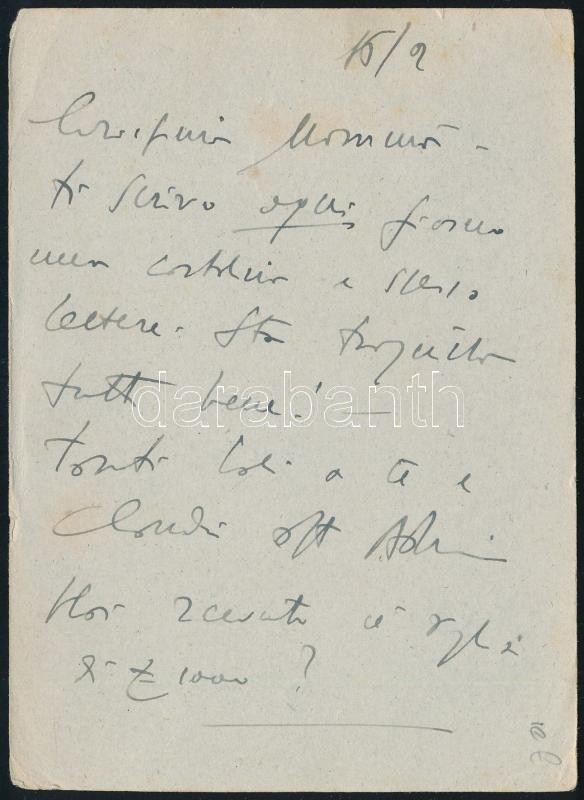 15/2
Carissima Mammà -
ti scrivo ogni giorno
una cartolina e spesso
lettere. Sta tranquilla
tutto bene! —
Tanti baci a te e
Claudia aff
Hai ricevuto il vaglia
di £ 1000 ?
darabanth